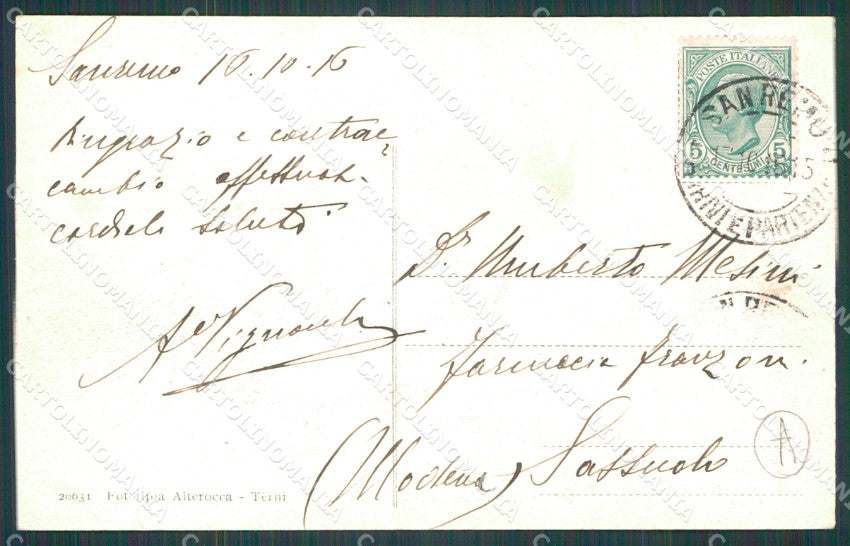 Sanremo 16.10.16
Ringrazio e contrac=
cambio affettuosi
cordiali saluti
POSTE ITALIANE
5 CENTESIMI 5
SAN REMO
ARRIVI E PARTENZE
Dr Umberto Mesini
farmacia Franzoni
Sassuolo
(Modena)
A
20631 Fototipia Alterocca - Terni
CARTOLINOMANIA